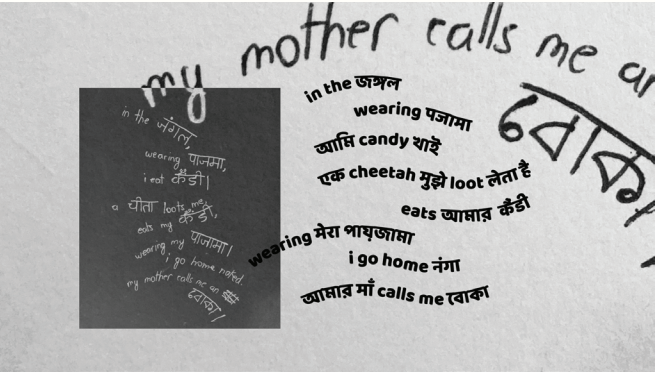 my mother calls me
বোকা
in the जंगल,
wearing पाजामा,
i eat कैंडी।
a चीता loots me,
eats my कैंडी,
wearing my पाजामा।
i go home naked.
my mother calls me an
বোকা।
in the জঙ্গল
wearing पजामा
আমি candy খাই
एक cheetah मुझे loot लेता है
eats আমার कैंडी
wearing मेरा পায়জামা
i go home नंगा
আমার माँ calls me বোকা